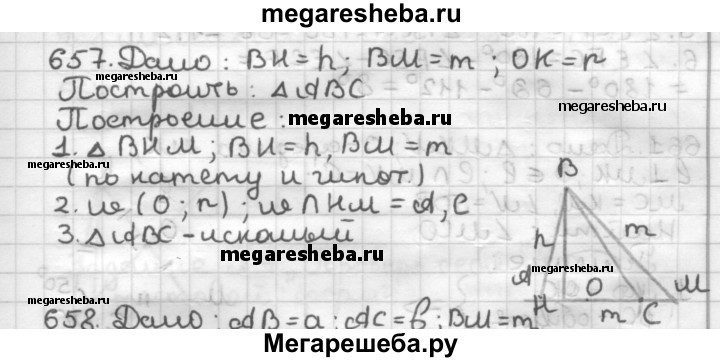 megaresheba.ru
657. Дано: BH = h; BM = m; OK = r
megaresheba.ru
megaresheba.ru
Построить: △ABC
Построение:
megaresheba.ru
1. △BHM; BH = h, BM = m
megaresheba.ru
(по катету и гипот.)
B
2. (O; r); ∩ HM = A, C
3. △ABC - искомый
h
m
megaresheba.ru
megaresheba.ru
A
O
M
H
m
C
megaresheba.ru
megaresheba.ru
658. Дано: AB = a; AC = b; BM = m
Мегарешеба.ру